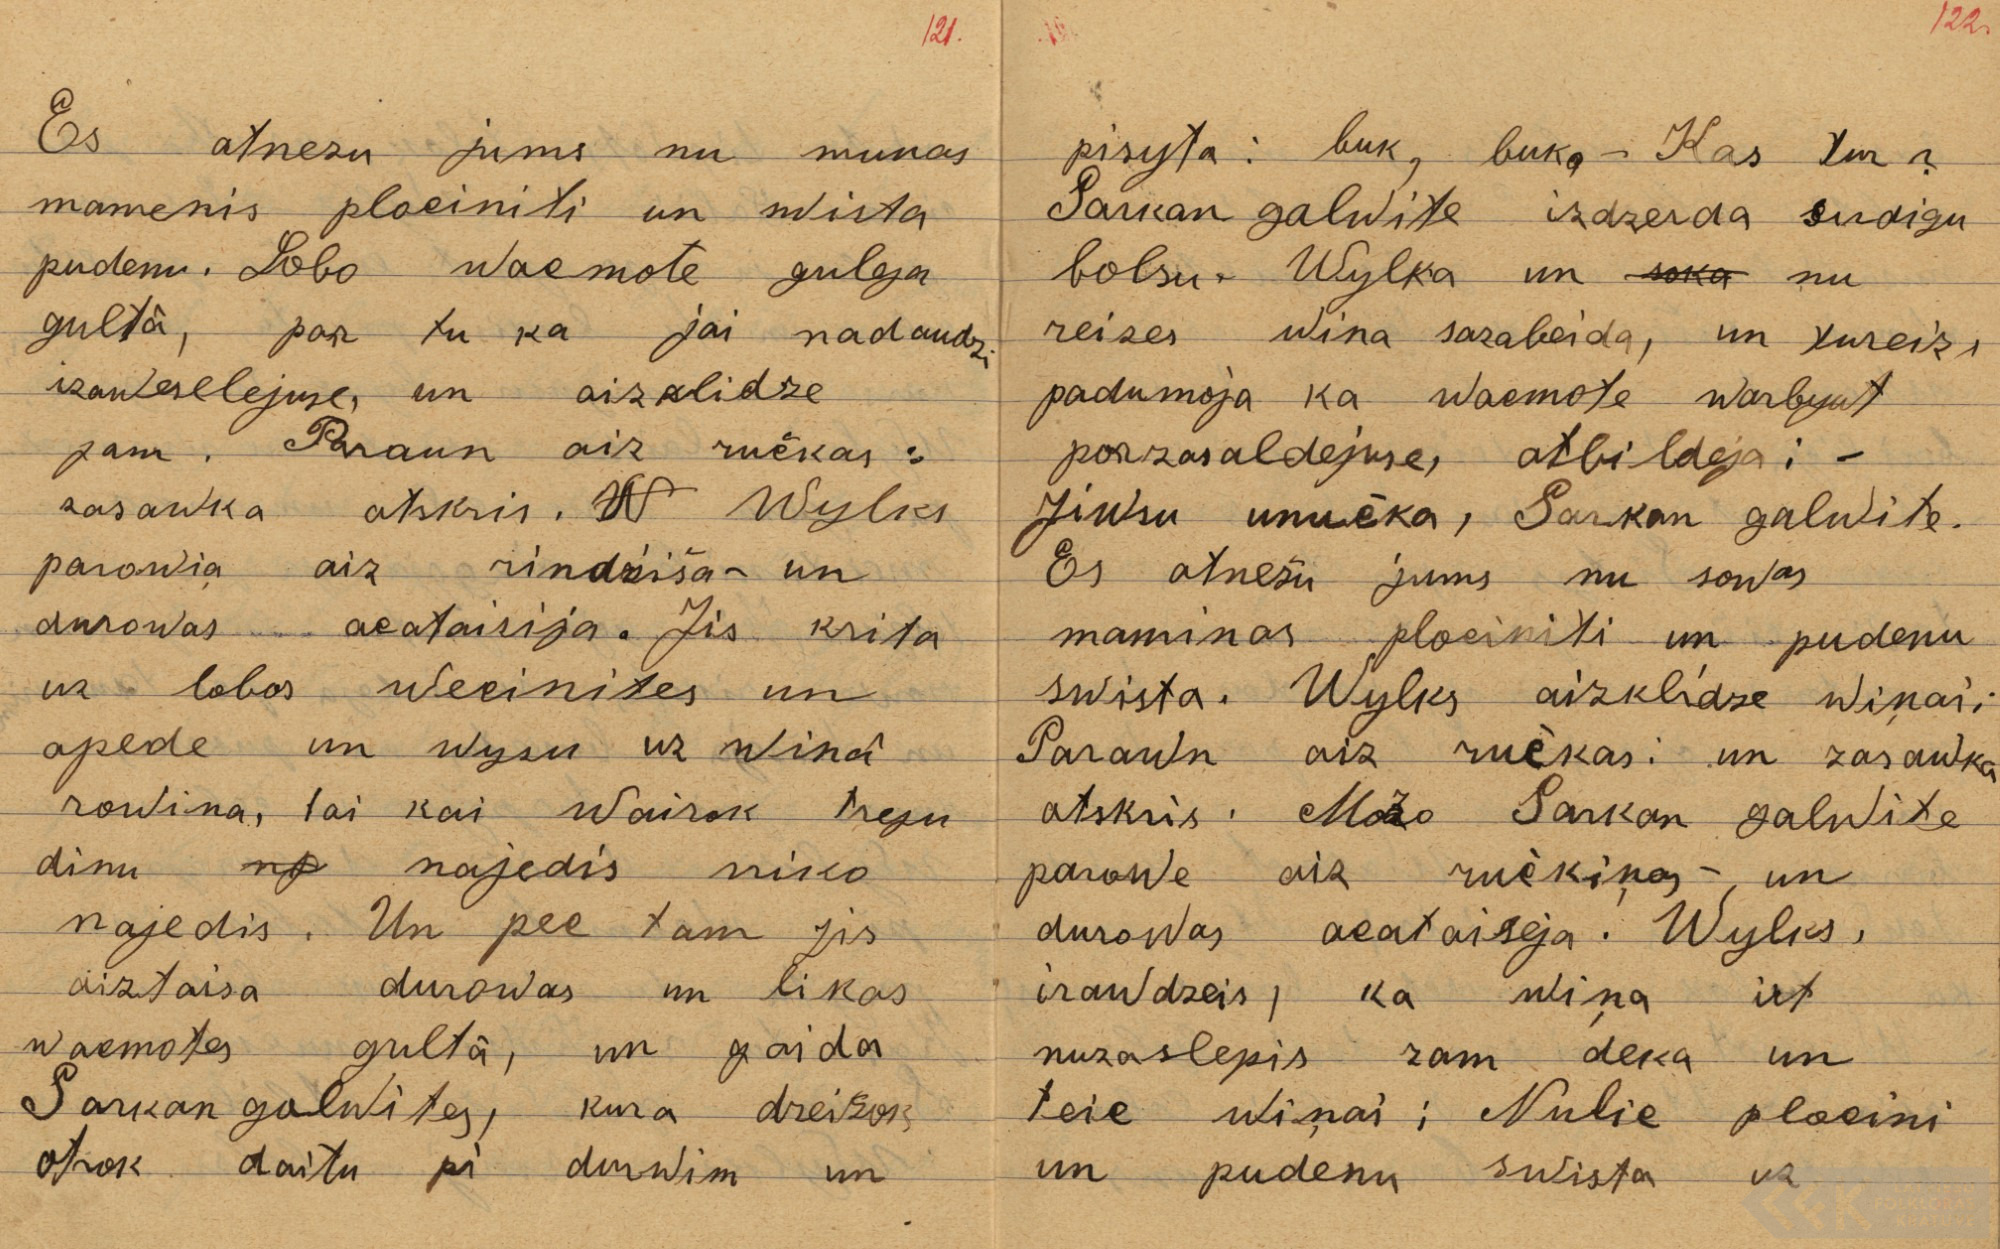 121.
Es atnezu jums nu munas
mamenis plociniti un swista
pudenu. Lobo wacmote guleja
gultâ, par tu ka jai nadaudzi
izaweselejuse, un aizklidze
jam. Paraun aiz ručkas:
zasawka atskris. Wylks
parowia aiz rindziša - un
durowas acataisija. Jis krita
uz lobos wecinites un
apede un wysu uz winâ
rowina, tai kai wairok treju
dinu najedis niko
najedis. Un pec tam jis
aiztaisa durowas un likas
wacmotes gultâ, un gaida
Sarkan galwites, kura dreižok
otrok daitu pi durwim un
122.
pisyta: buk, buk, - Kas tur?
Sarkan galwite izdzerda surdigu
bolsu. Wylka un soka nu
reizes wina sazabeida, un tureiz,
padumoja ka wacmote warbyut
porzasaldejuse, atbildeja: -
Jiwsu unučka, Sarkan galwite.
Es atnežu jums nu sowas
maminas plociniti un pudenu
swista. Wylks aizklidze wiņai:
Parawn aiz ručkas: un zasawka
atskris. Mozo Sarkan galwite
parowe aiz ručkiņas -, un
durowas acataiseja. Wylks,
irawdzeis, ka wiņa irt
nuzaslepis zam deka un
teic wiņai: Nulic plocini
un pudenu swista uz